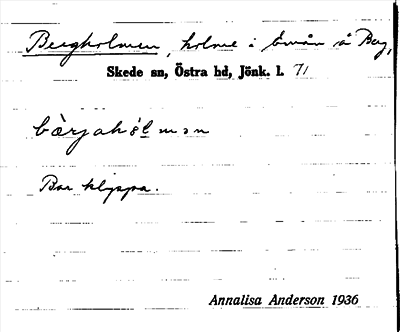 Bergholmen, holme i Emån å Berg,
Skede sn, Östra hd, Jönk. l. 71
bàrjahólmən
Bar klippa.
Annalisa Anderson 1936